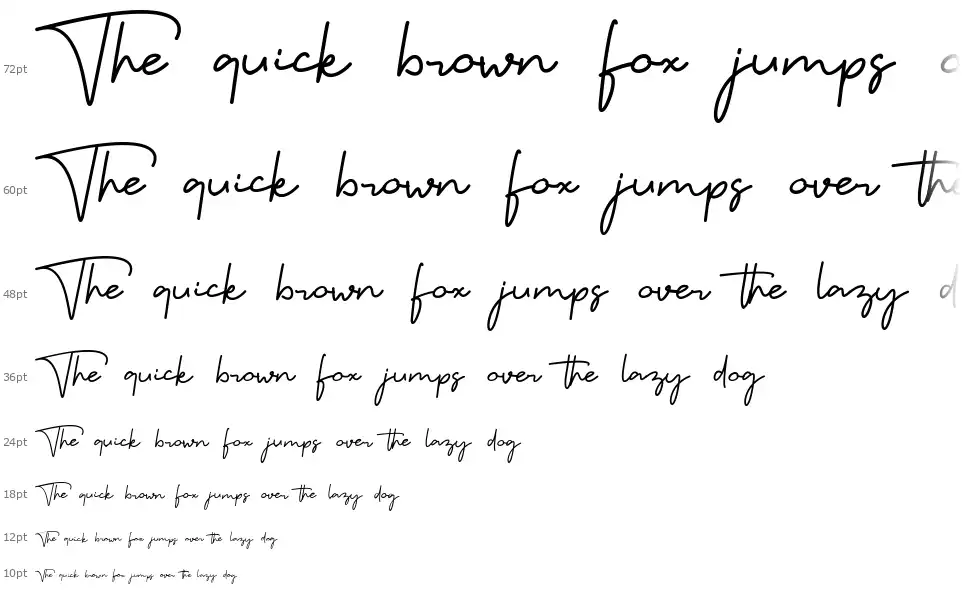 72pt The quick brown fox jumps o
60pt The quick brown fox jumps over the
48pt The quick brown fox jumps over the lazy d
36pt The quick brown fox jumps over the lazy dog
24pt The quick brown fox jumps over the lazy dog
18pt The quick brown fox jumps over the lazy dog
12pt The quick brown fox jumps over the lazy dog
10pt The quick brown fox jumps over the lazy dog